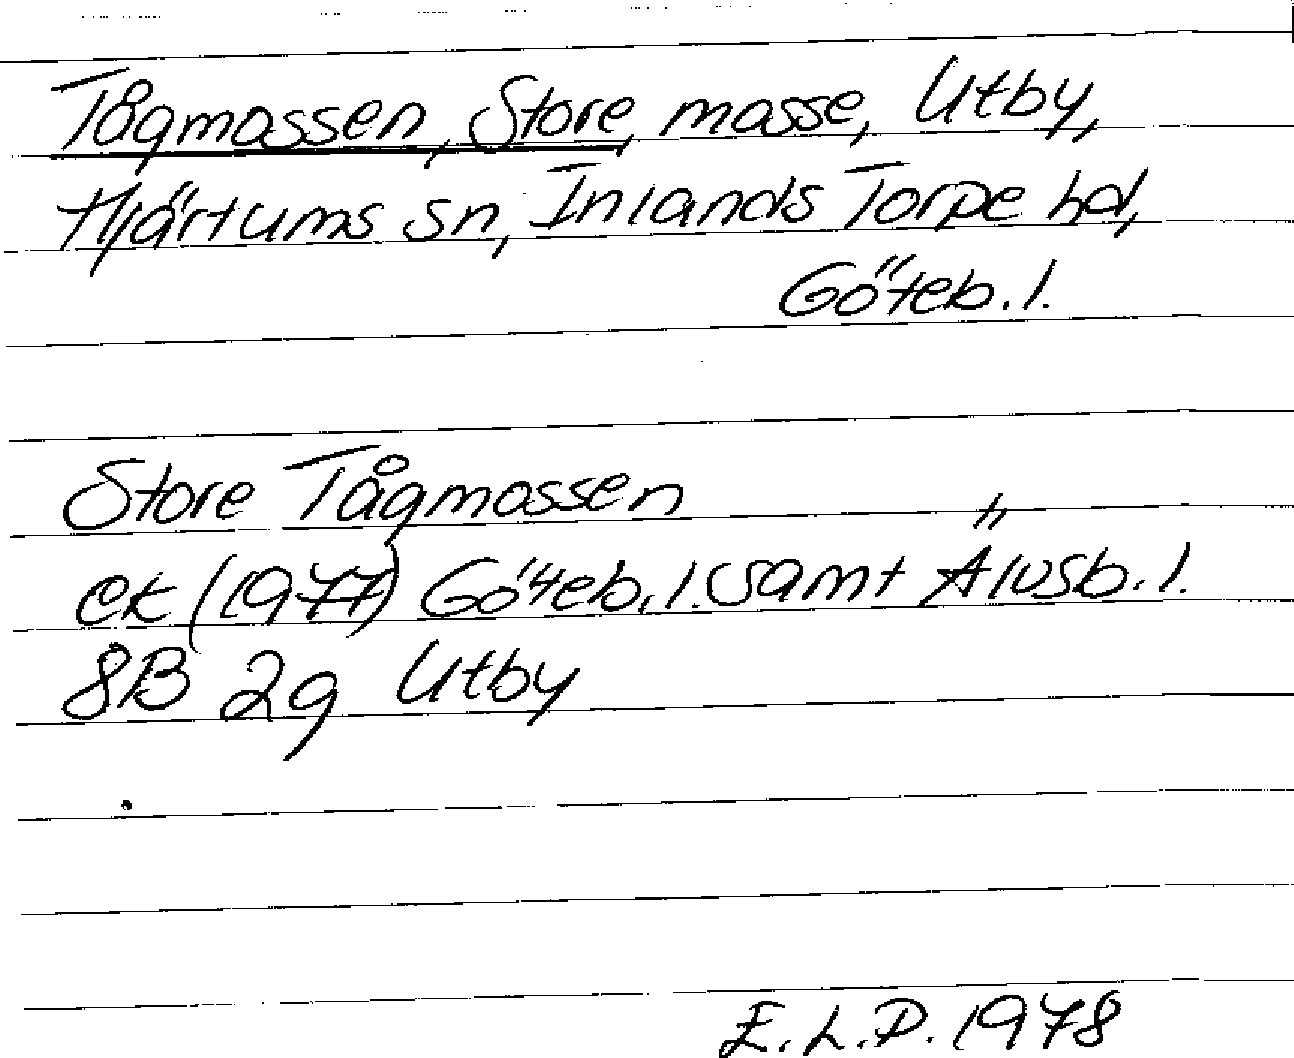 Tågmossen, Store, mosse, Utby,
Hjärtums sn, Inlands Torpe hd,
Göteb. l.
Store Tågmossen
ek (1977) Göteb. l. samt Älvsb. l.
8B 2g Utby
E. L. P. 1978